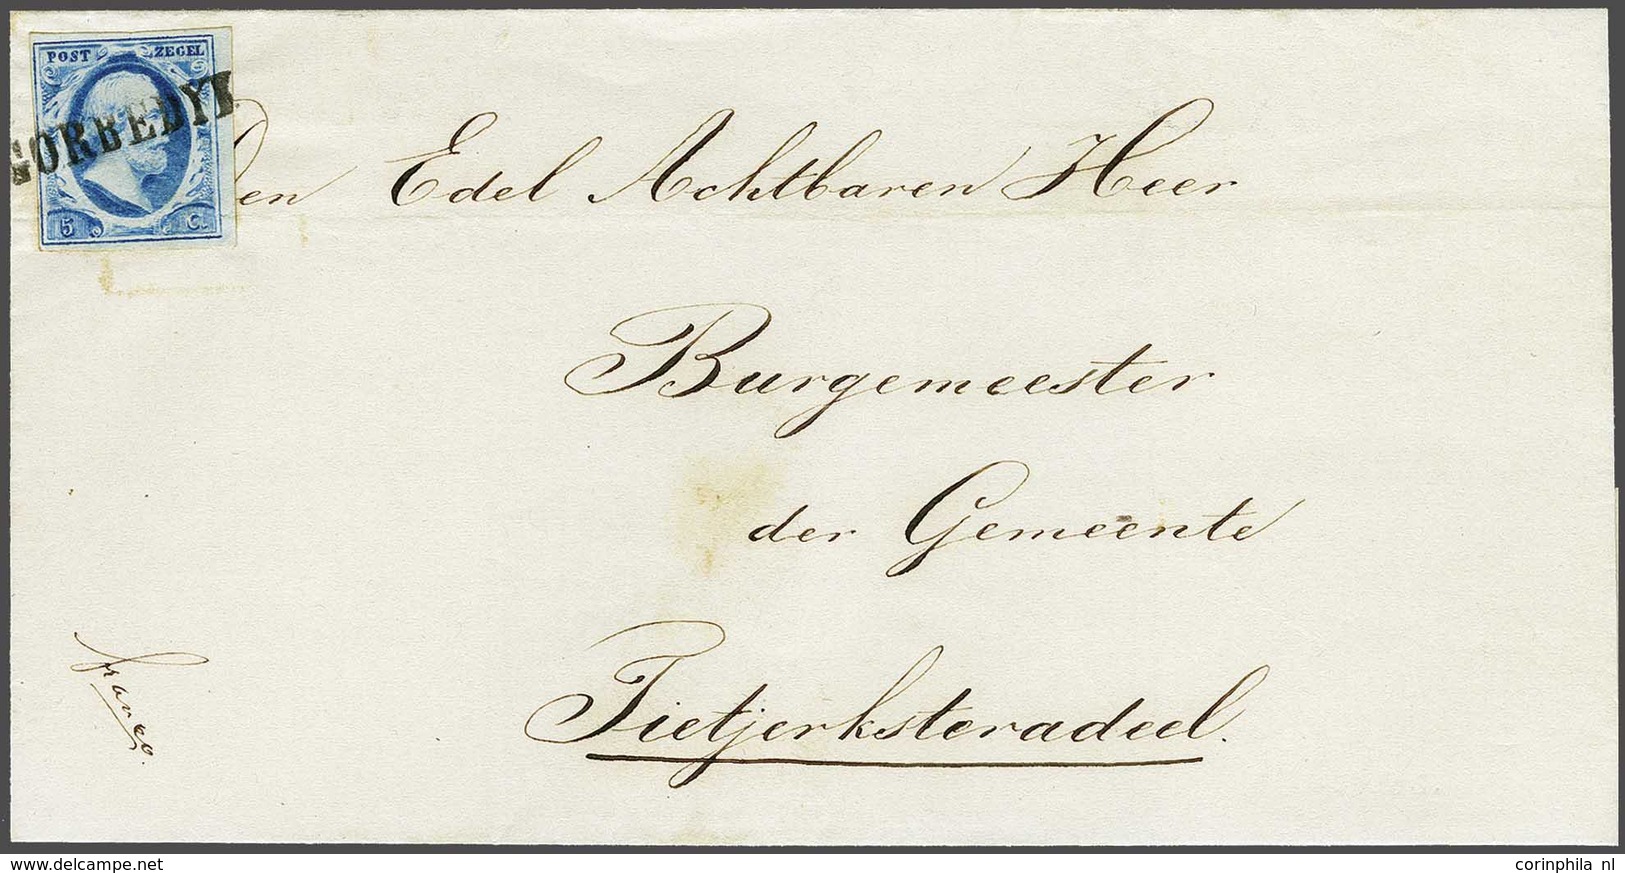 POST ZEGEL
GORBEDYK
5 C.
Den Edel Achtbaren Heer
Burgemeester
der Gemeente
Tietjerksteradeel.
franco.
www.delcampe.net
corinphila nl